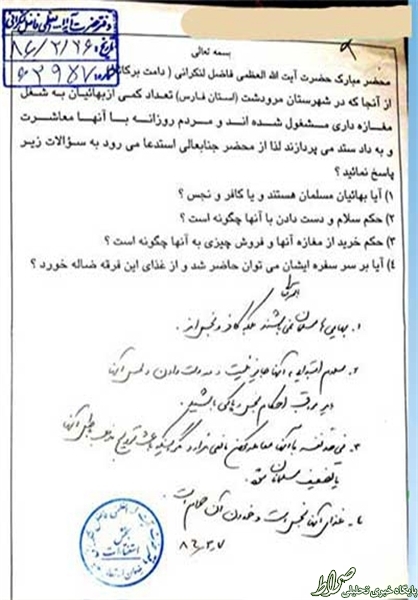 دفتر حضرت آیت الله العظمی فاضل لنکرانی
تاریخ: ۸۶/۲/۲۶
بسمه تعالی
محضر مبارک حضرت آیت الله العظمی فاضل لنکرانی ( دامت برکاته
از آنجا که در شهرستان مرودشت (استان فارس) تعداد کمی ازبهائیان به شغل
مغازه داری مشغول شده اند و مردم روزانه با آنها معاشرت
و به داد ستد می پردازند لذا از محضر جنابعالی استدعا می رود به سؤالات زیر
پاسخ نمائید ؟
۱) آیا بهائیان مسلمان هستند و یا کافر و نجس ؟
۲) حکم سلام و دست دادن با آنها چگونه است ؟
۳) حکم خرید از مغازه آنها و فروش چیزی به آنها چگونه است ؟
۴) آیا بر سر سفره ایشان می توان حاضر شد و از غذای این فرقه ضاله خورد ؟
۱. بهایی ها مسلمان نمی باشند بلکه کافر و نجس اند.
۲. سلام ابتدایی به آنها جایز نیست و دست دادن و لمس آنها
احکام نجس و پاکی
۳. فی حد نفسه با آنها معامله کردن مانعی ندارد مگر اینکه باعث ترویج مذهب باطل آنها
یا تضعیف مسلمانان
۴. غذای آنها نجس است و خوردن آن حرام است.
۸۶/۳/۷
بخش
استفتاءات
صراط
پایگاه خبری تحلیلی